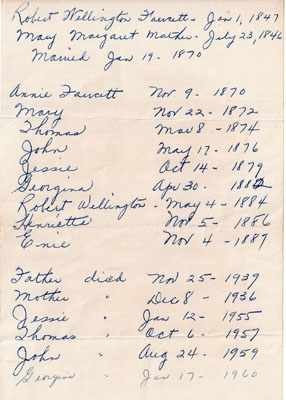 Robert Wellington Faucett - Jan 1, 1847
Mary Margaret - July 23, 1846
Married Jan 19 - 1870
Annie Faucett Nov 9 - 1870
Mary Nov 22 - 1872
Thomas Mar 8 - 1874
John May 17 - 1876
Jessie Oct 14 - 1879
Georgina Apr 30 - 1882
Robert Wellington - May 4 - 1884
Henrietta Nov 5 - 1886
Ernie Nov 4 - 1889
Father died Nov 25 - 1939
Mother " Dec 8 - 1936
Jessie " Jan 12 - 1955
Thomas " Oct 6 - 1957
John " Aug 24 - 1959
Georgina " Jan 17 - 1960